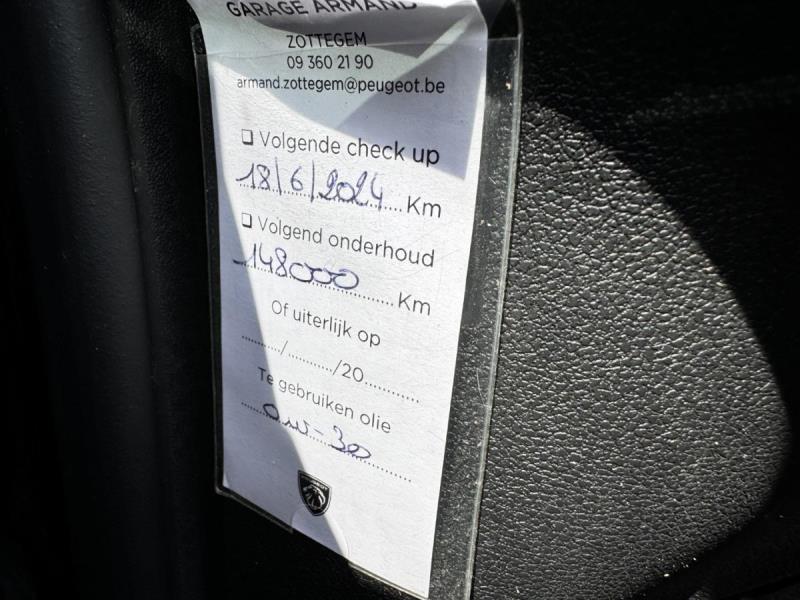 GARAGE ARMAND
ZOTTEGEM
09 360 21 90
armand.zottegem@peugeot.be
❑ Volgende check up
18/6/2024 Km
❑ Volgend onderhoud
148000 Km
Of uiterlijk op
........../.........../20............
Te gebruiken olie
0w-30